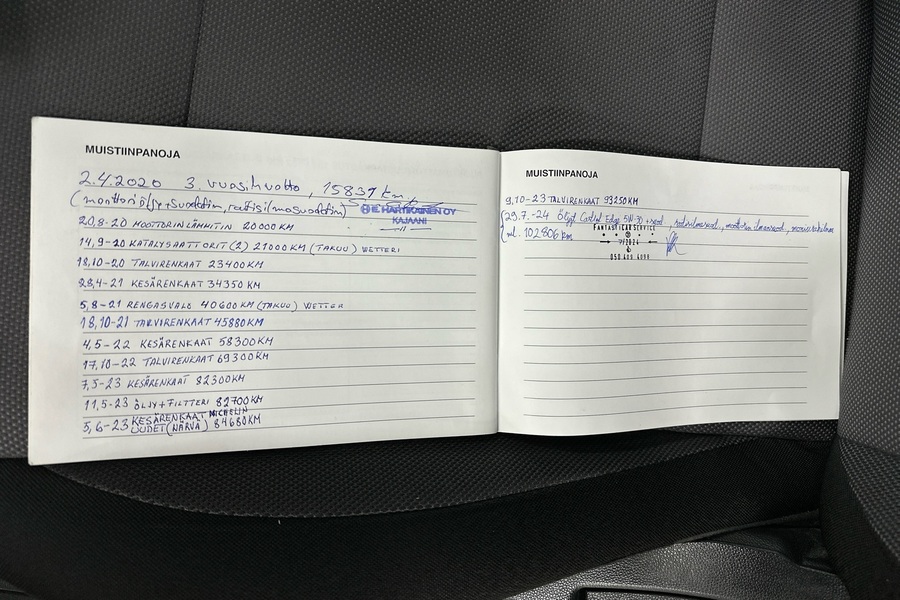 MUISTIINPANOJA
2.4.2020 3. vuosihuolto, 15837 km
(moottoriöljy+suodatin, raitisilmasuodatin)
E. HARTIKAINEN OY
KAJAANI
20,8-20 MOOTTORINLÄMMITIN 20000KM
14,9-20 KATALYSAATTORIT(2) 21000KM (TAKUU) WETTERI
18,10-20 TALVIRENKAAT 23400KM
28,4-21 KESÄRENKAAT 34350KM
5,8-21 RENGASVALO 40600KM (TAKUU) WETTER
18,10-21 TALVIRENKAAT 45880KM
4,5-22 KESÄRENKAAT 58300KM
17,10-22 TALVIRENKAAT 69300KM
7,5-23 KESÄRENKAAT 82300KM
11,5-23 ÖLJY+FILTTERI 82700KM
5,6-23 KESÄRENKAAT MICHELIN
UUDET (NARVA) 84680KM
MUISTIINPANOJA
9,10-23 TALVIRENKAAT 93250KM
29.7.-24 Öljyt Castrol Edge 5W-30 + suod., raitisilmasuod., moottorin ilmansuod.,
ml. 102806 km
FANTASTICARSERVICE
7/2024